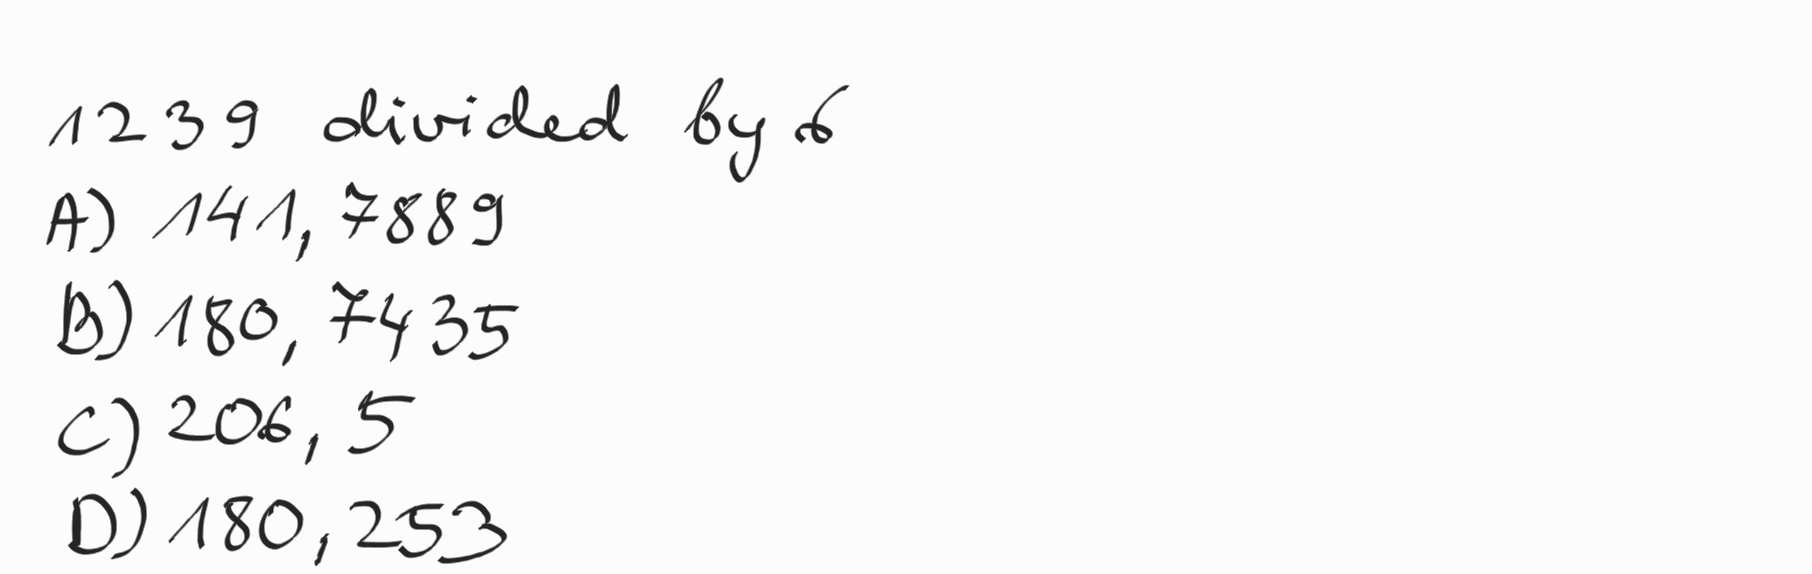 1239 divided by 6
A) 141,7889
B) 180,7435
C) 206,5
D) 180,253